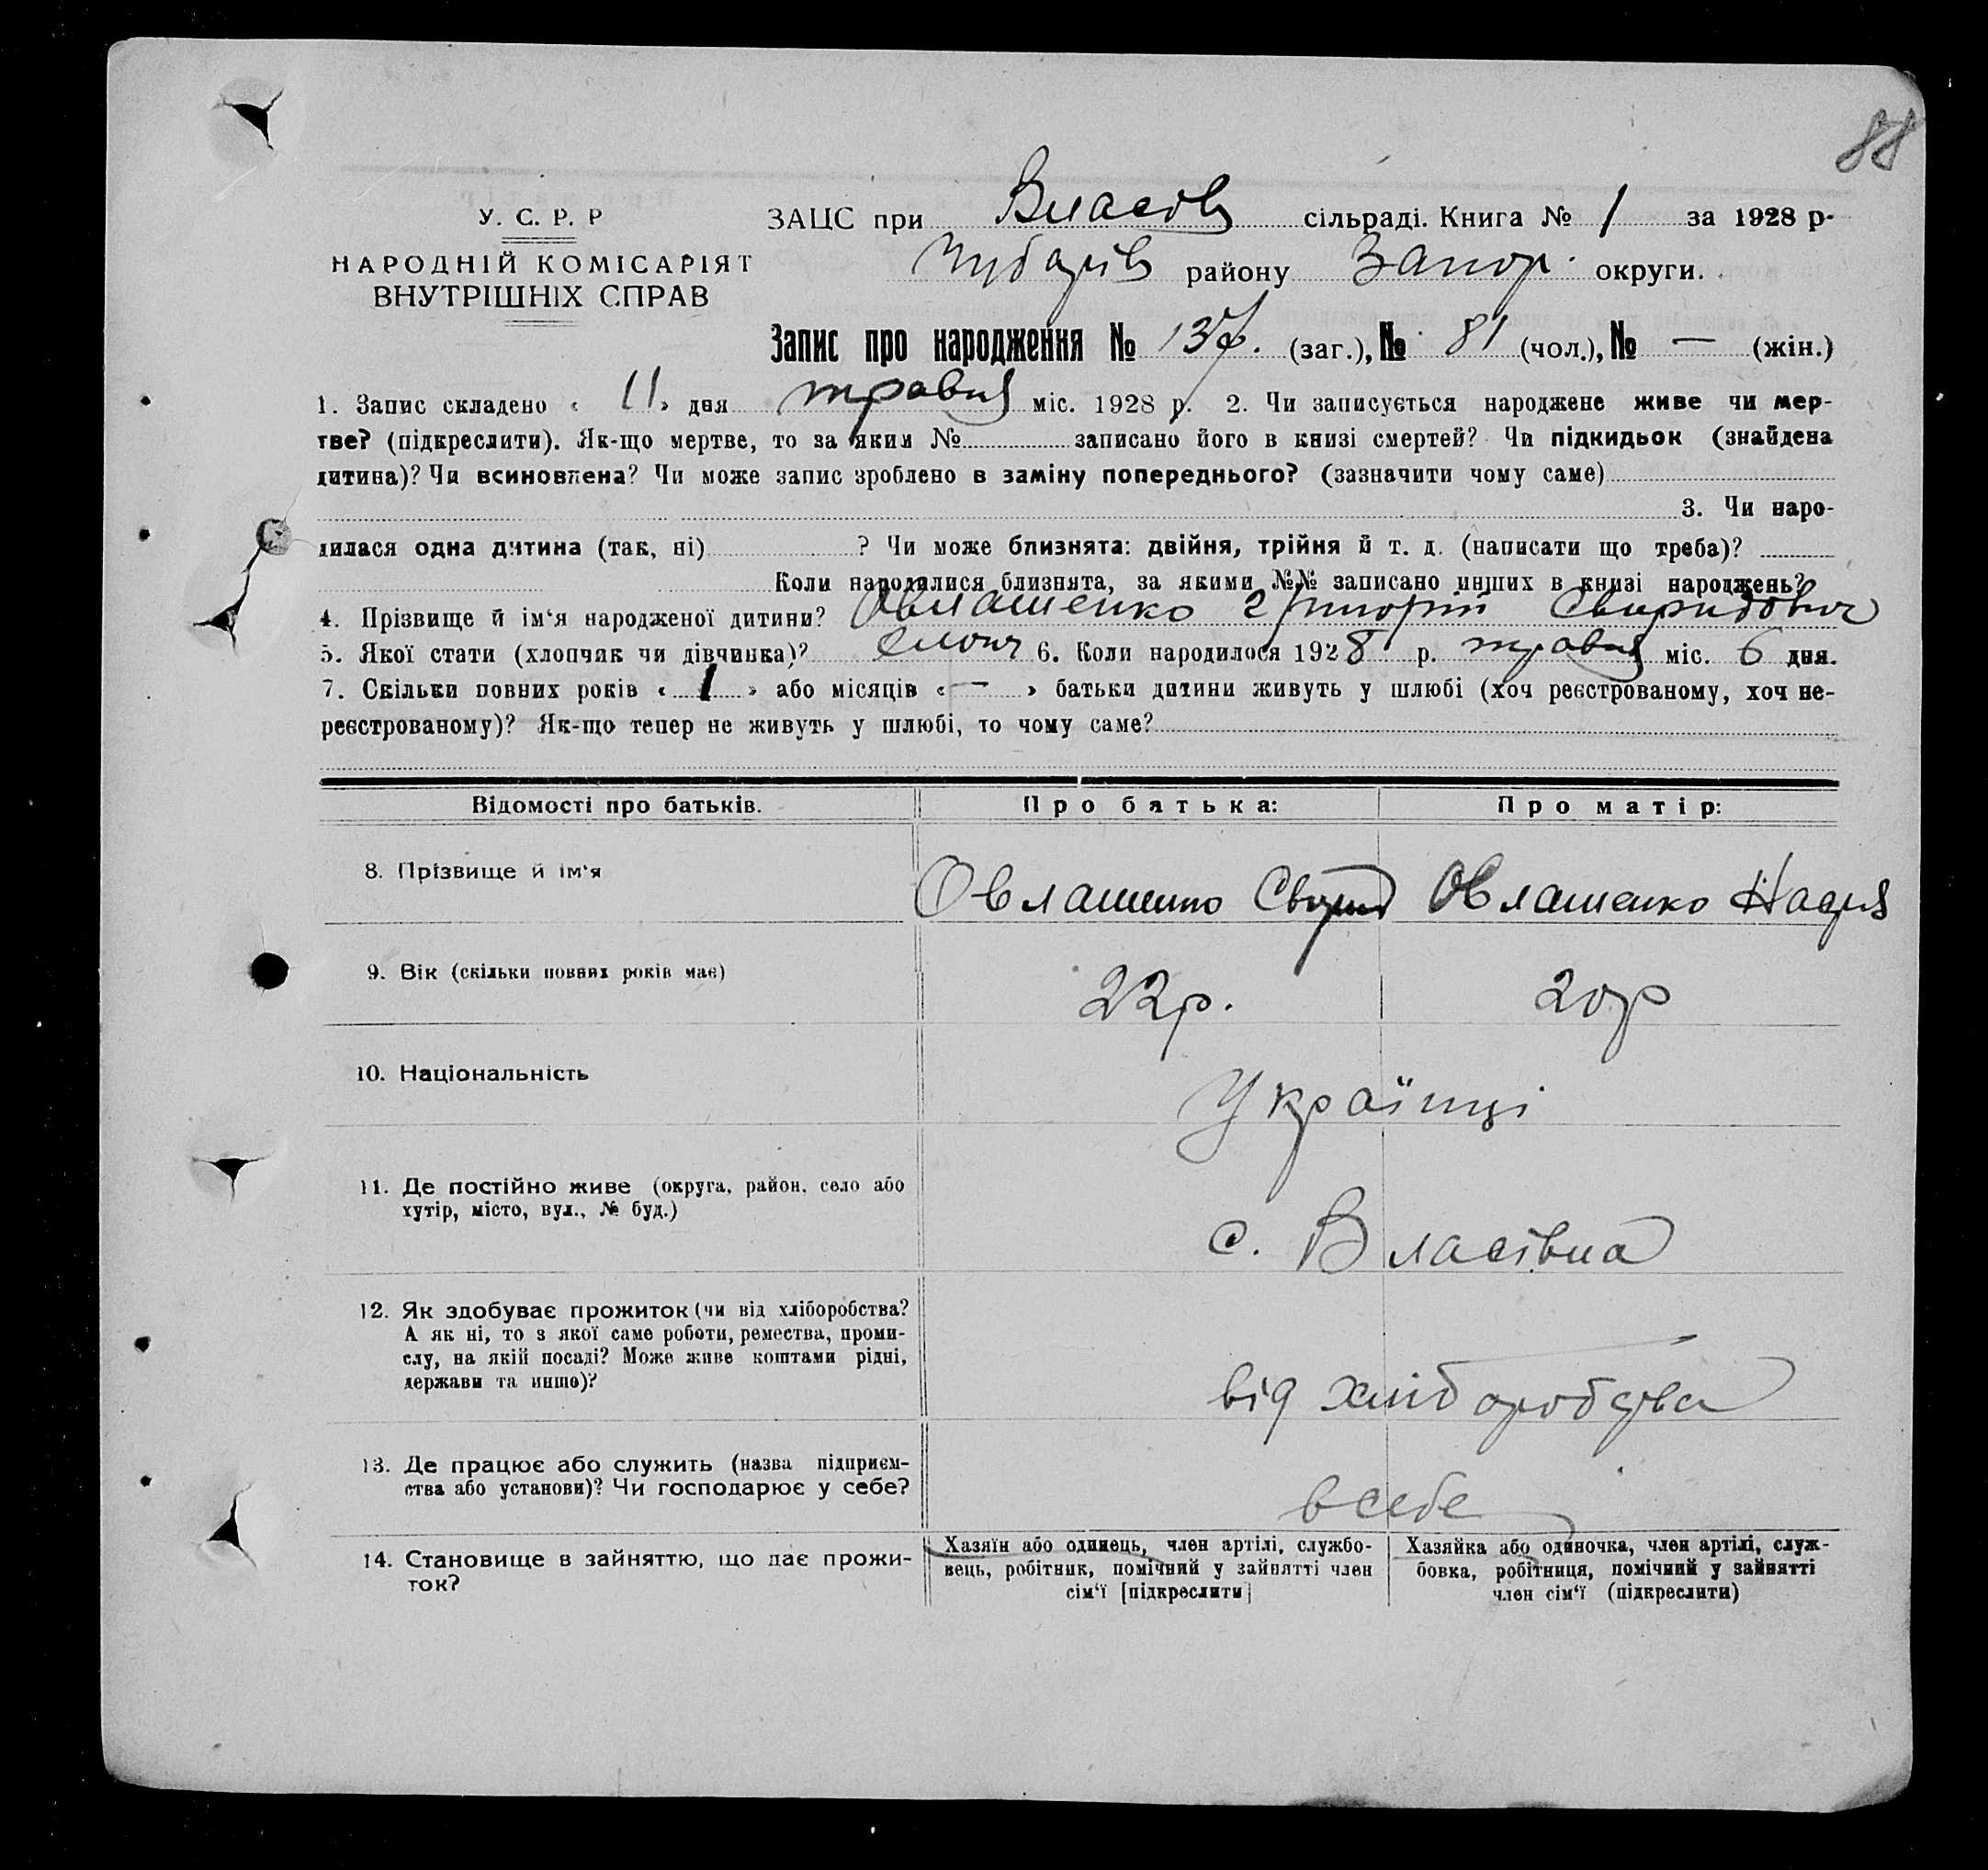 88
У. С. Р. Р
НАРОДНІЙ КОМІСАРІЯТ
ВНУТРІШНІХ СПРАВ
ЗАЦС при Власов сільраді. Книга № 1 за 1928 р.
Чубарів району Запор. округи.
Запис про народження № 137. (заг.), № 81 (чол.), № — (жін.)
1. Запис складено « 11 » дня травня міс. 1928 р. 2. Чи записується народжене живе чи мер-
тве? (підкреслити). Як-що мертве, то за яким № записано його в книзі смертей? Чи підкидьок (знайдена
дитина)? Чи всиновлена? Чи може запис зроблено в заміну попереднього? (зазначити чому саме)
3. Чи наро-
дилася одна дитина (так, ні) ? Чи може близнята: двійня, трійня й т. д. (написати що треба)?
Коли народилися близнята, за якими №№ записано инших в книзі народжень?
4. Прізвище й ім‘я народженої дитини? Овлашенко Григорій Свиридович
5. Якої стати (хлопчик чи дівчинка)? 6. Коли народилося 1928 р. травня міс. 6 дня.
7. Скільки повних років « 1 » або місяців « — » батьки дитини живуть у шлюбі (хоч реєстрованому, хоч не-
реєстрованому)? Як-що тепер не живуть у шлюбі, то чому саме?
Відомості про батьків. Про батька: Про матір:
8. Прізвище й ім‘я Овлашенко Свирид Овлашенко Надія
9. Вік (скільки повних років має) 22р. 20р
10. Національність Українці
11. Де постійно живе (округа, район, село або
хутір, місто, вул., № буд.)
с. Власівка
12. Як здобуває прожиток (чи від хліборобства?
А як ні, то з якої саме роботи, ремества, проми-
слу, на якій посаді? Може живе коштами рідні,
держави та иншо)?
від хліборобства
13. Де працює або служить (назва підприєм-
ства або установи)? Чи господарює у себе?
в себе
14. Становище в зайняттю, що дає прожи-
ток?
Хазяїн або одинець, член артілі, службо-
вець, робітник, помічний у зайнятті член
сім‘ї [підкреслити]
Хазяйка або одиночка, член артілі, служ-
бовка, робітниця, помічний у зайнятті
член сім‘ї (підкреслити)